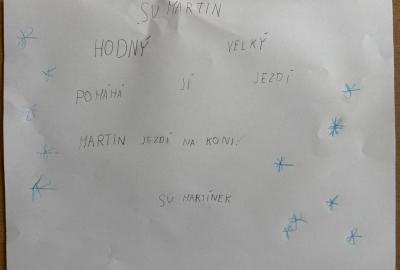 SV MARTIN
HODNÝ VELKÝ
POMÁHÁ JÍ JEZDÍ
MARTIN JEZDÍ NA KONI.
SV. MARTÍNEK